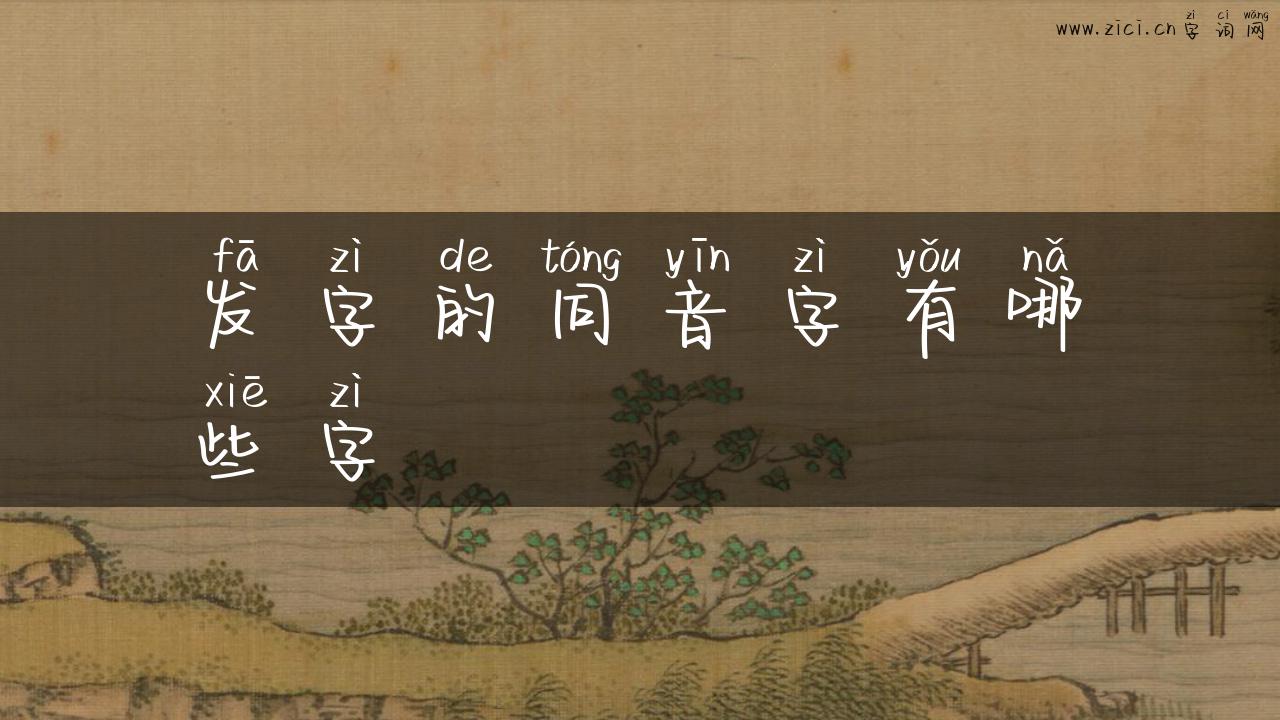 zì cí wǎng
www.zici.cn 字词网
fā zì de tóng yīn zì yǒu nǎ
发字的同音字有哪
xiē zì
些字